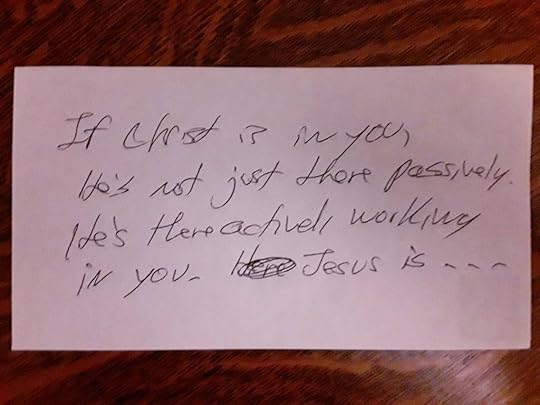 If Christ is in you,
He's not just there passively.
He's there actively working
in you. Jesus is ----